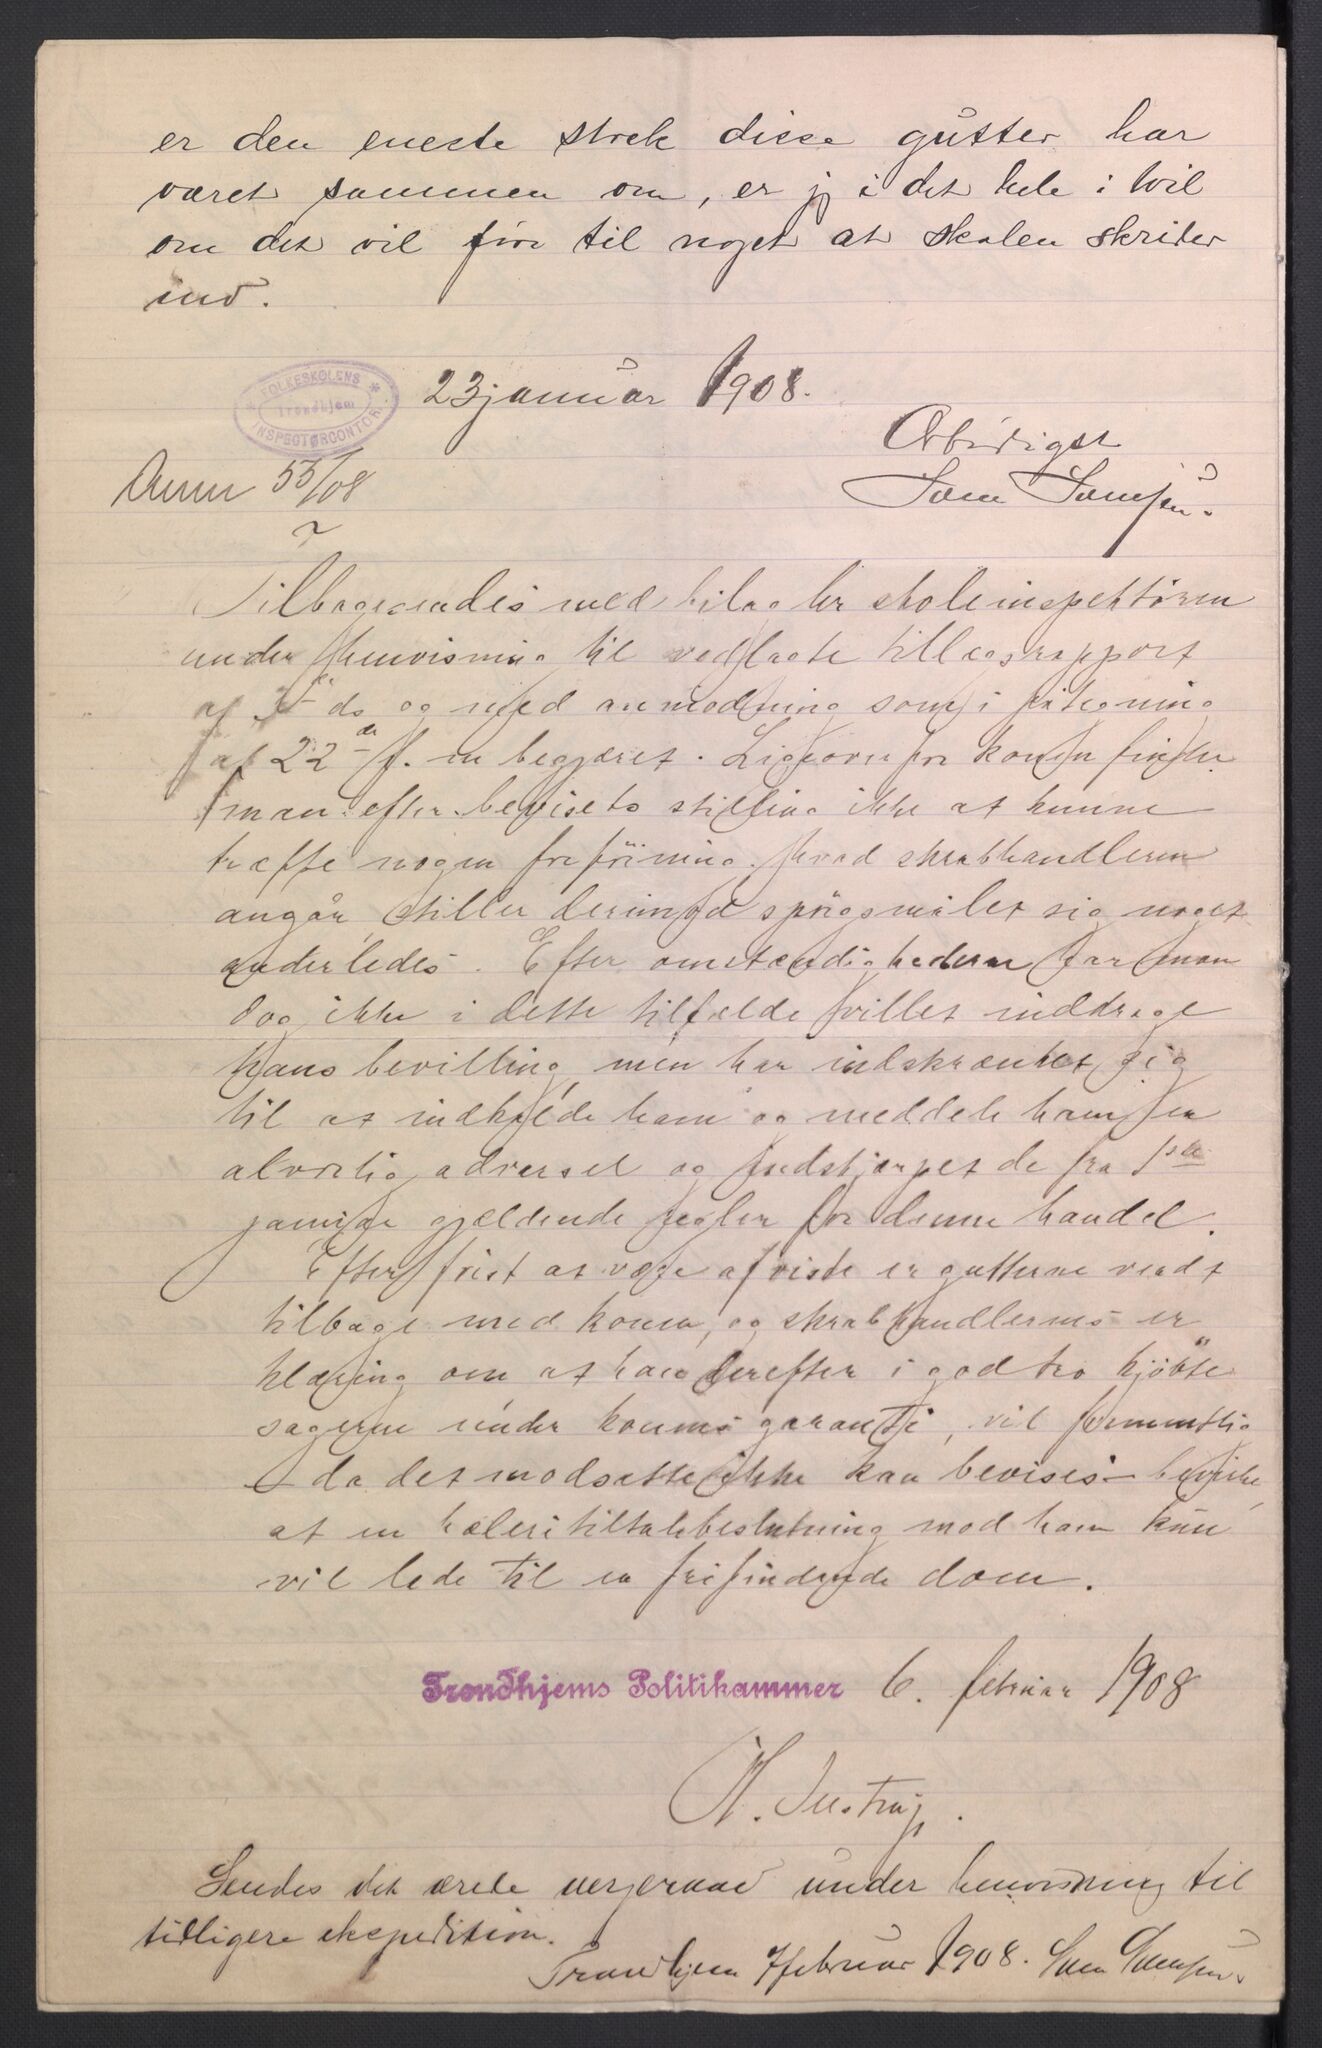 er den eneste strek disse gutter har
været sammen om, er jeg i det hele i tvil
om det vil føre til noget at skolen skrider
ind.
FOLKESKOLENS
Trondhjem
INSPECTØRCONTOR
23 januar 1908.
Ærbødigst
55/08
Tilbagesendes med bilag hr skoleinspektøren
under henvisning til vedlagte tillægsrapport
af ds og med anmodning som i påtegning
af 22de f. m begjæret. Ligeoverfor konen finder
man efter bevisets stilling ikke at kunne
træffe nogen forføining. Hvad skrabhandleren
angår, stiller derimod spörgsmålet sig noget
anderledes. Efter omstændighederne har man
dog ikke i dette tilfælde villet inddrage
hans bevilling, men har indskrænket sig
til at indkalde ham og meddele ham en
alvorlig advarsel og indskjærpet de fra 1ste
januar gjældende regler for denne handel.
Efter först at være afviste er gutterne vendt
tilbage med konen, og skrabhandlerens er
klæring om at han derefter i god tro kjöbte
sagerne under konens garanti, vil formentlig
– da det modsatte ikke kan bevises – bevirke,
at en hæleritiltalebeslutning mod ham kun
vil lede til en frifindende dom.
Trondhjems Politikammer 6. februar 1908
Sendes det ærede vergeraad under henvisning til
tidligere ekspedition.
Trondhjem 7 februar 1908.